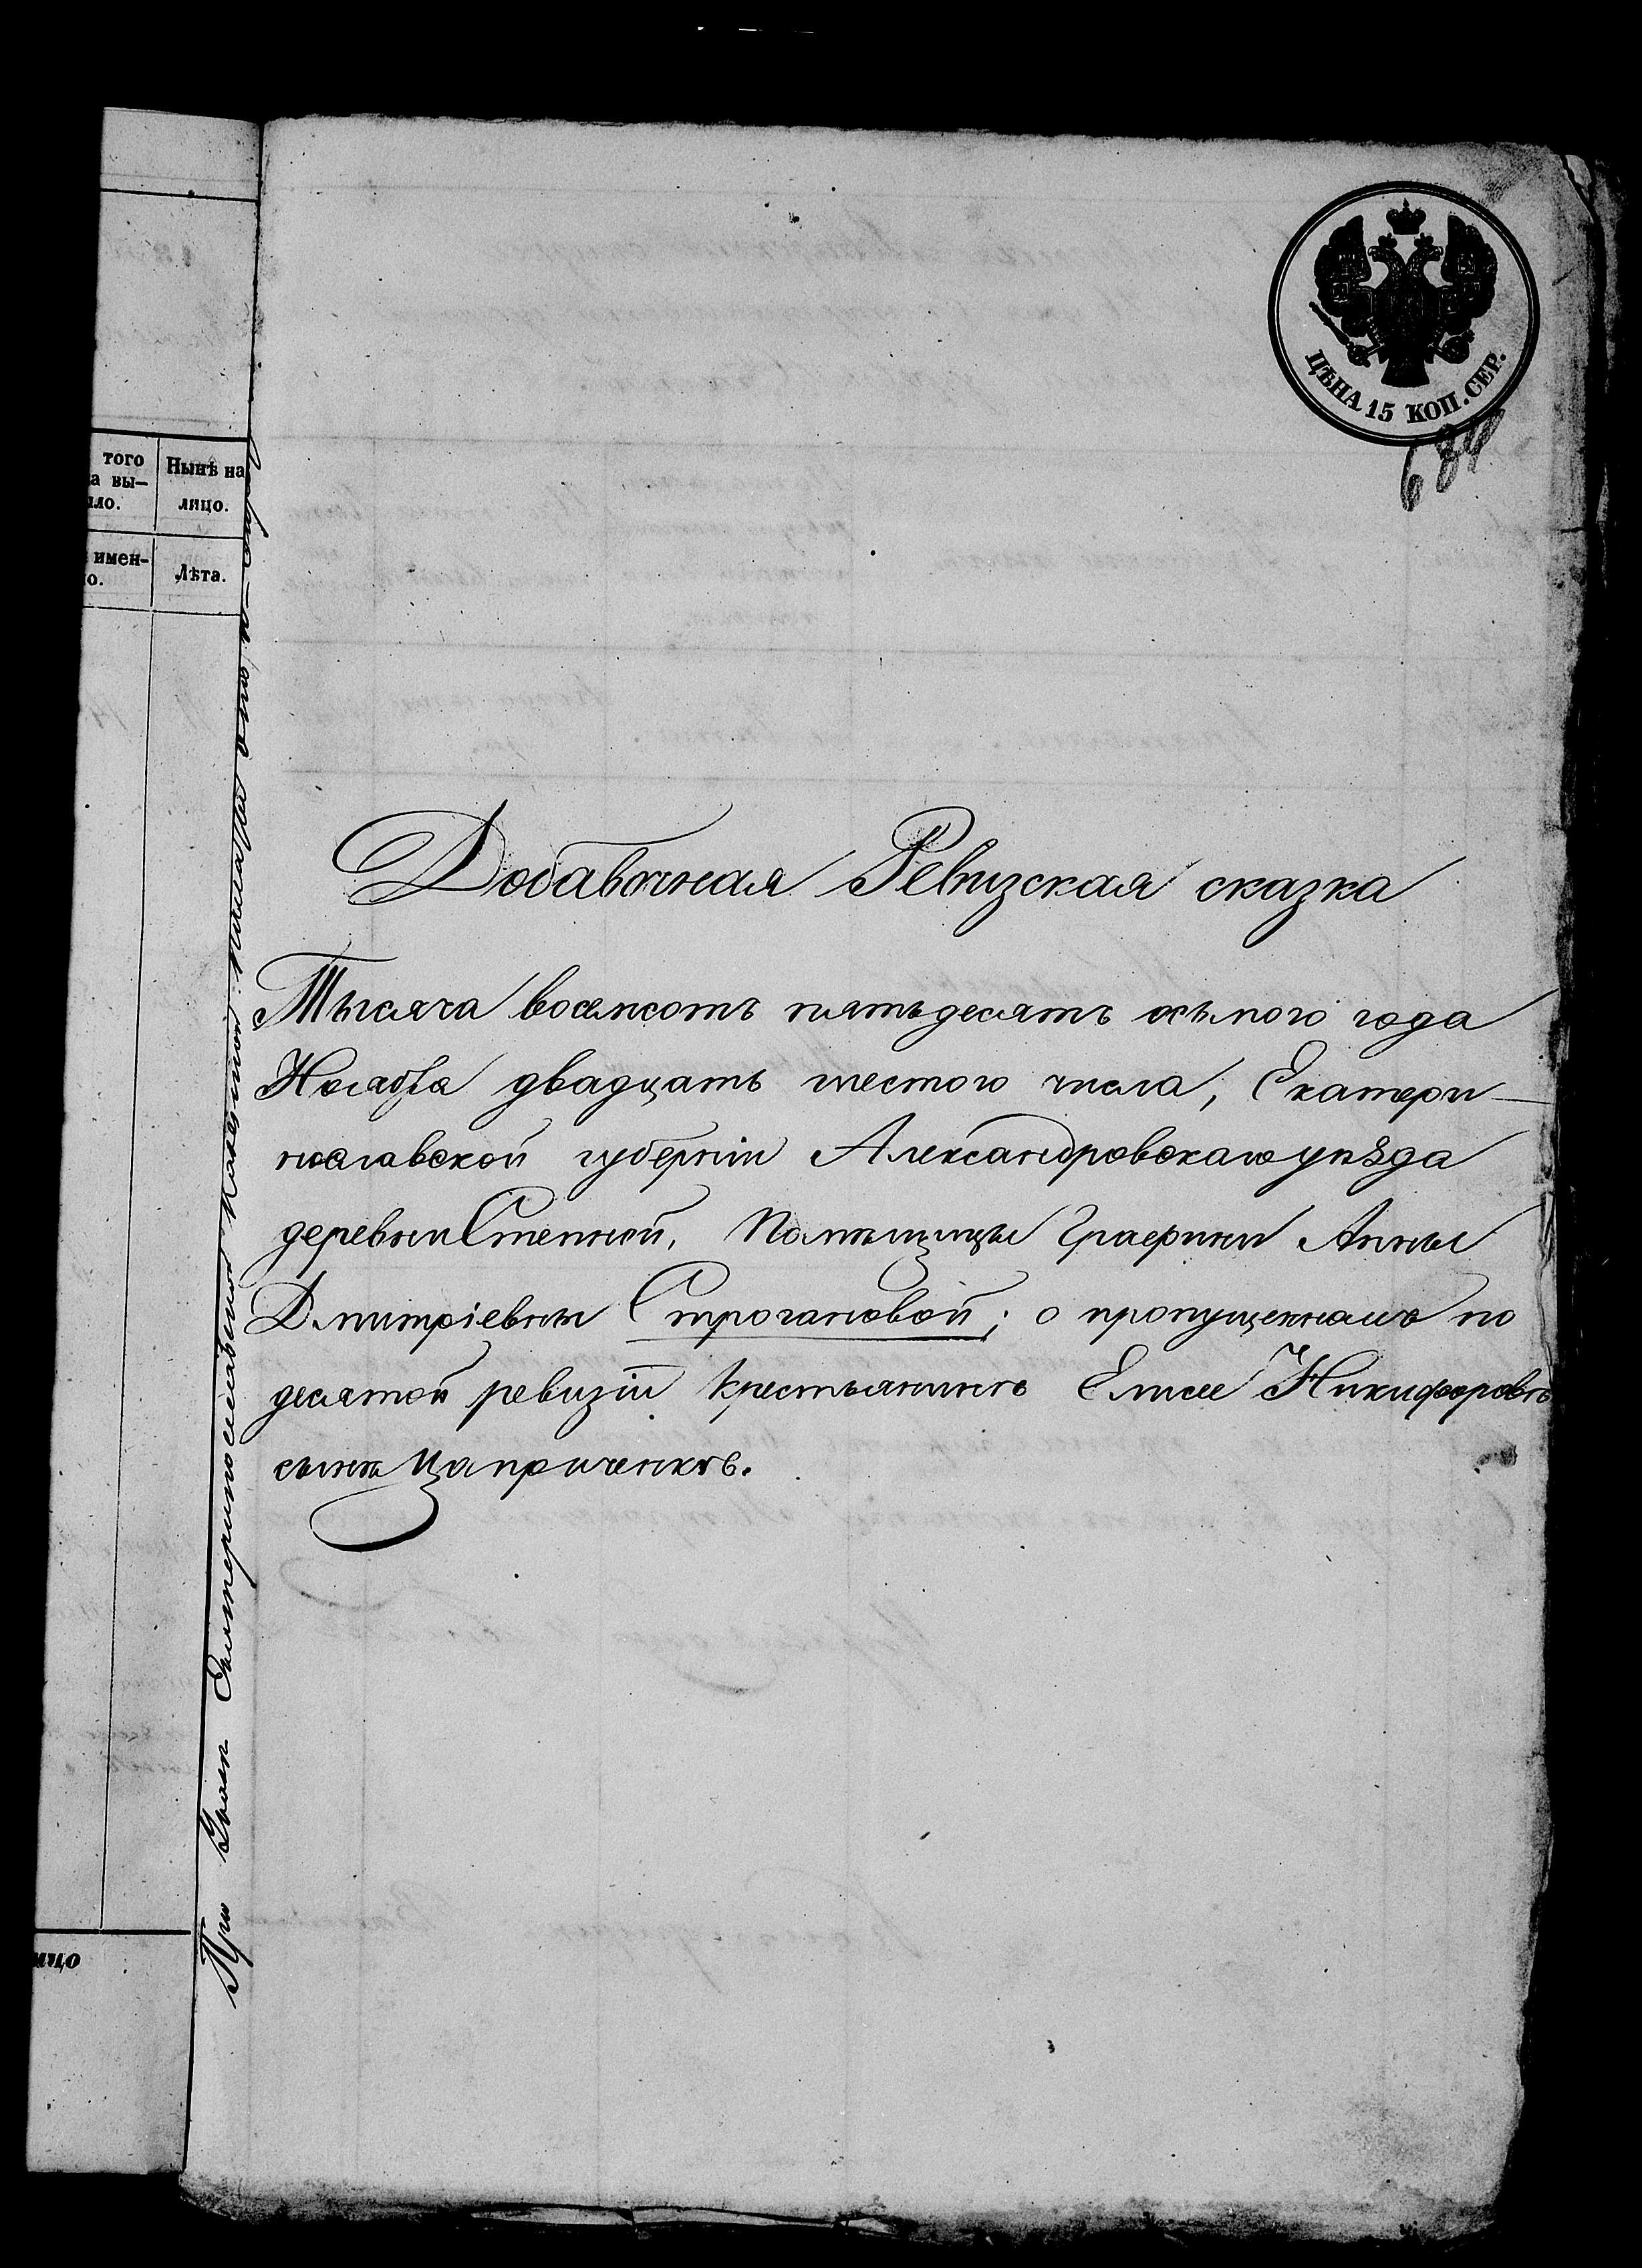 ЦѢНА 15 КОП. СЕР.
689
того
а вы-
ло.
Нынѣ на
лицо.
имен-
о.
Лѣта.
ицо
Добавочная Ревизская сказка
Тысяча восемсотъ пятьдесятъ осьмого года
Ноября двадцать шестого числа, Екатери-
нославской губерніи Александровскаго уѣзда
деревни Степной, Помѣщицы Графини Анны
Дмитріевны Строгановой; о пропущенномъ по
десятой ревизіи крестьянинѣ Елисее Никифоровѣ
сынѣ Цаприченковѣ.
При Указѣ Екатеринославской Казенной Палаты отъ